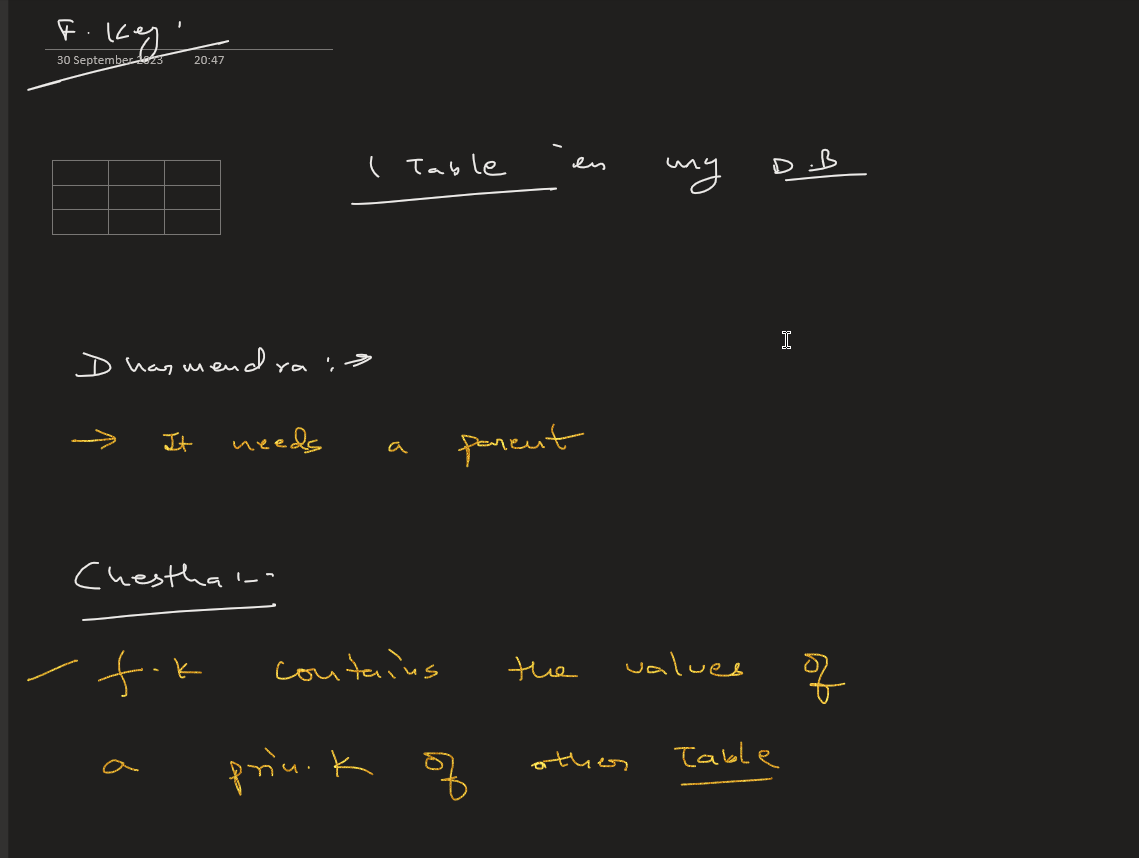 F. Key:
30 September 2023 20:47
1 Table in my D.B
Dharmendra :→
→ It needs a parent
Chestha :--
f.k contains the values of
a prim. k of other Table